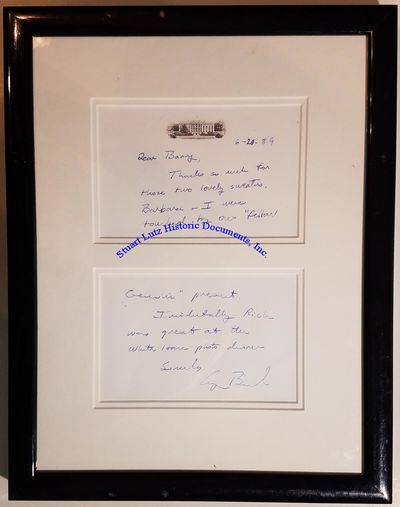 6-20-89
Dear Barry,
Thanks so much for
those two lovely sweaters.
Barbara & I were
touched by our
Stuart Lutz Historic Documents, Inc.
present
Incidentally Rich
was great at the
White House photo dinner
Sincerely,